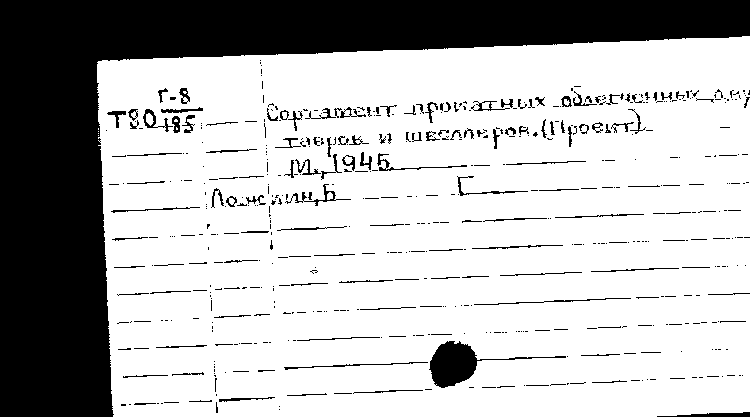 Г-8
Т80 185
Сортамент прокатных облегченных дву
тавров и швеллеров. (Проект)
М., 1945
Б Г